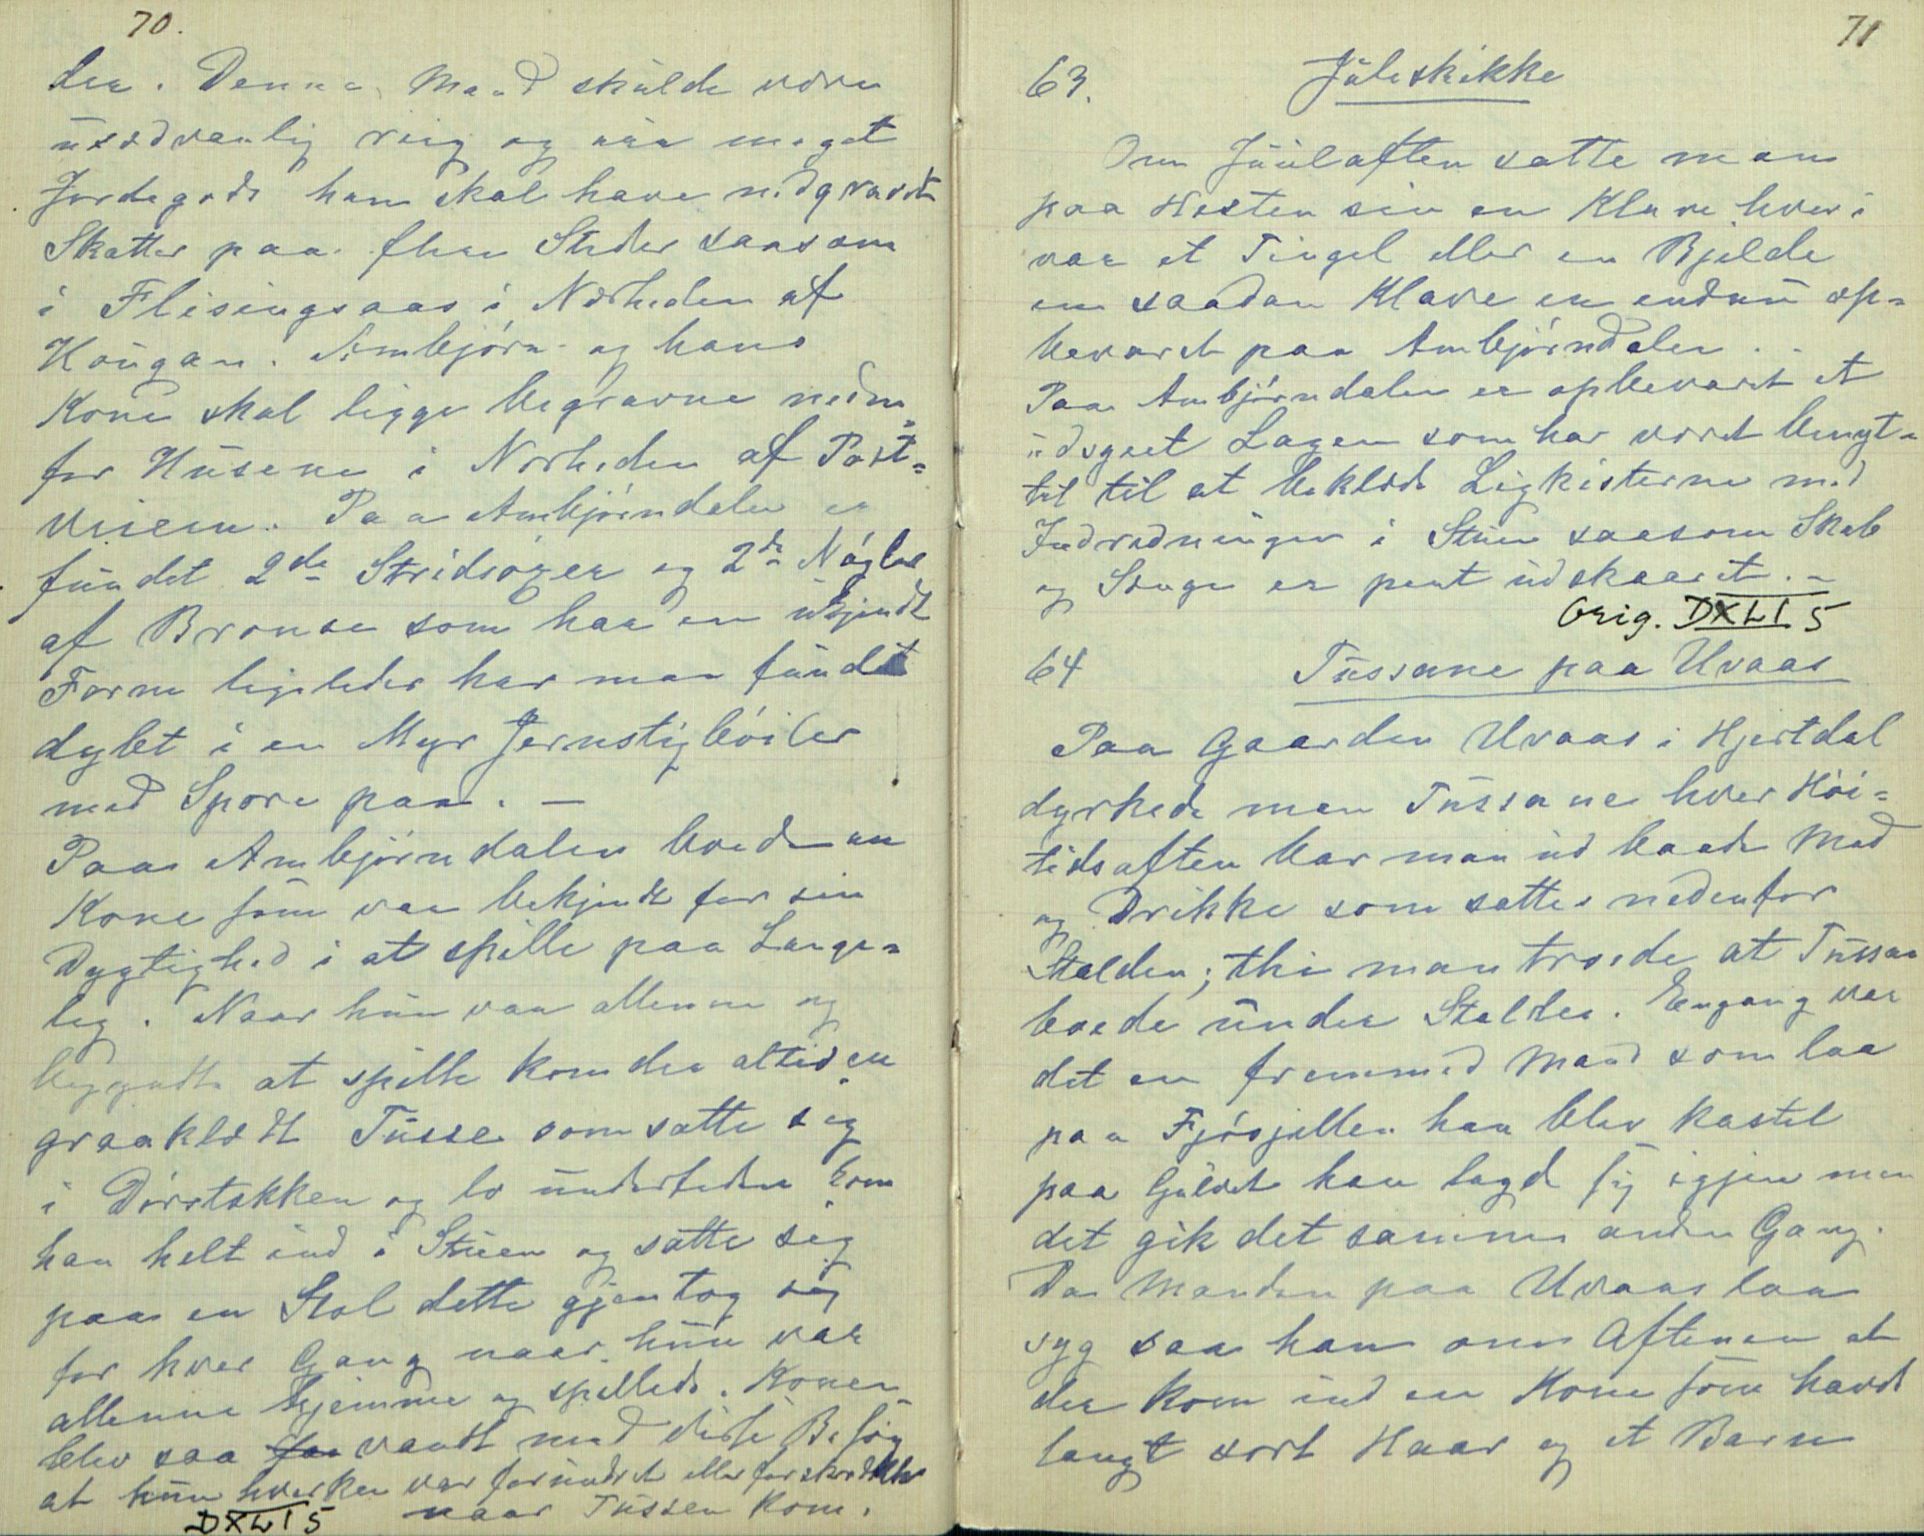 70.
der. Denne Mand skulde være
usædvanlig riig og eie meget
Jordegods han skal have nedgravet
Skatter paa flere Steder saasom
i Flisingsaas i Nærheden af
Haugan. Ambjörn og hans
Kone skal ligge begravne neden=
for Husene i Nærheden af Post=
veien. Paa Ambjörndalen er
fundet 2de Stridsöxer og 2de Nögler
af Bronse som har en ukjendt
Form ligeledes har man fundet
dybt i en Myr Jernstigböiler
med Spore paa. —
Paa Ambjörndalen boede en
Kone som var bekjendt for sin
Dygtighed i at spille paa Lange=
leg. Naar hun var allene og
begyndte at spille kom der altid en
graaklædt Tusse som satte sig
i Dörstokken og lo undertiden kom
han helt ind i Stuen og satte sig
paa en Stol dette gjentog sig
for hver Gang naar hun var
allene hjemme og spillede. Konen
blev saa vandt med disse Besög
at hun hverken var forundret eller forskrækket
naar Tussen kom.
DXLI 5
71
63. Juleskikke
Om Juulaften satte man
paa Hesten sin en Klave hveri
var et Tingel eller en Bjelde
en saadan Klave er endnu op=
bevaret paa Ambjörndalen.
Paa Ambjörndalen er opbevaret et
udsyet Lagen som har været benyt=
tet til at beklæde Ligkisterne med
Indredningen i Stuen saasom Skab
og Senge er pent udskaaret. -
Orig. DXLI 5
64 Tussane paa Uvaas
Paa Gaarden Uvaas i Hjertdal
dyrkede man Tussane hver Höi=
tidsaften bar man ud baade Mad
og Drikke som sattes nedenfor
Stalden; thi man troede at Tussan
boede under Stalden. Engang var
det en fremmed Mand som laa
paa Fjösjellen han blev kastet
paa Gulvet han lagd sig igjen men
det gik det samme anden Gang.
Da Manden paa Uvaas laa
syg saa han om Aftenen at
der kom ind en Kone som havde
langt sort Haar og et Barn